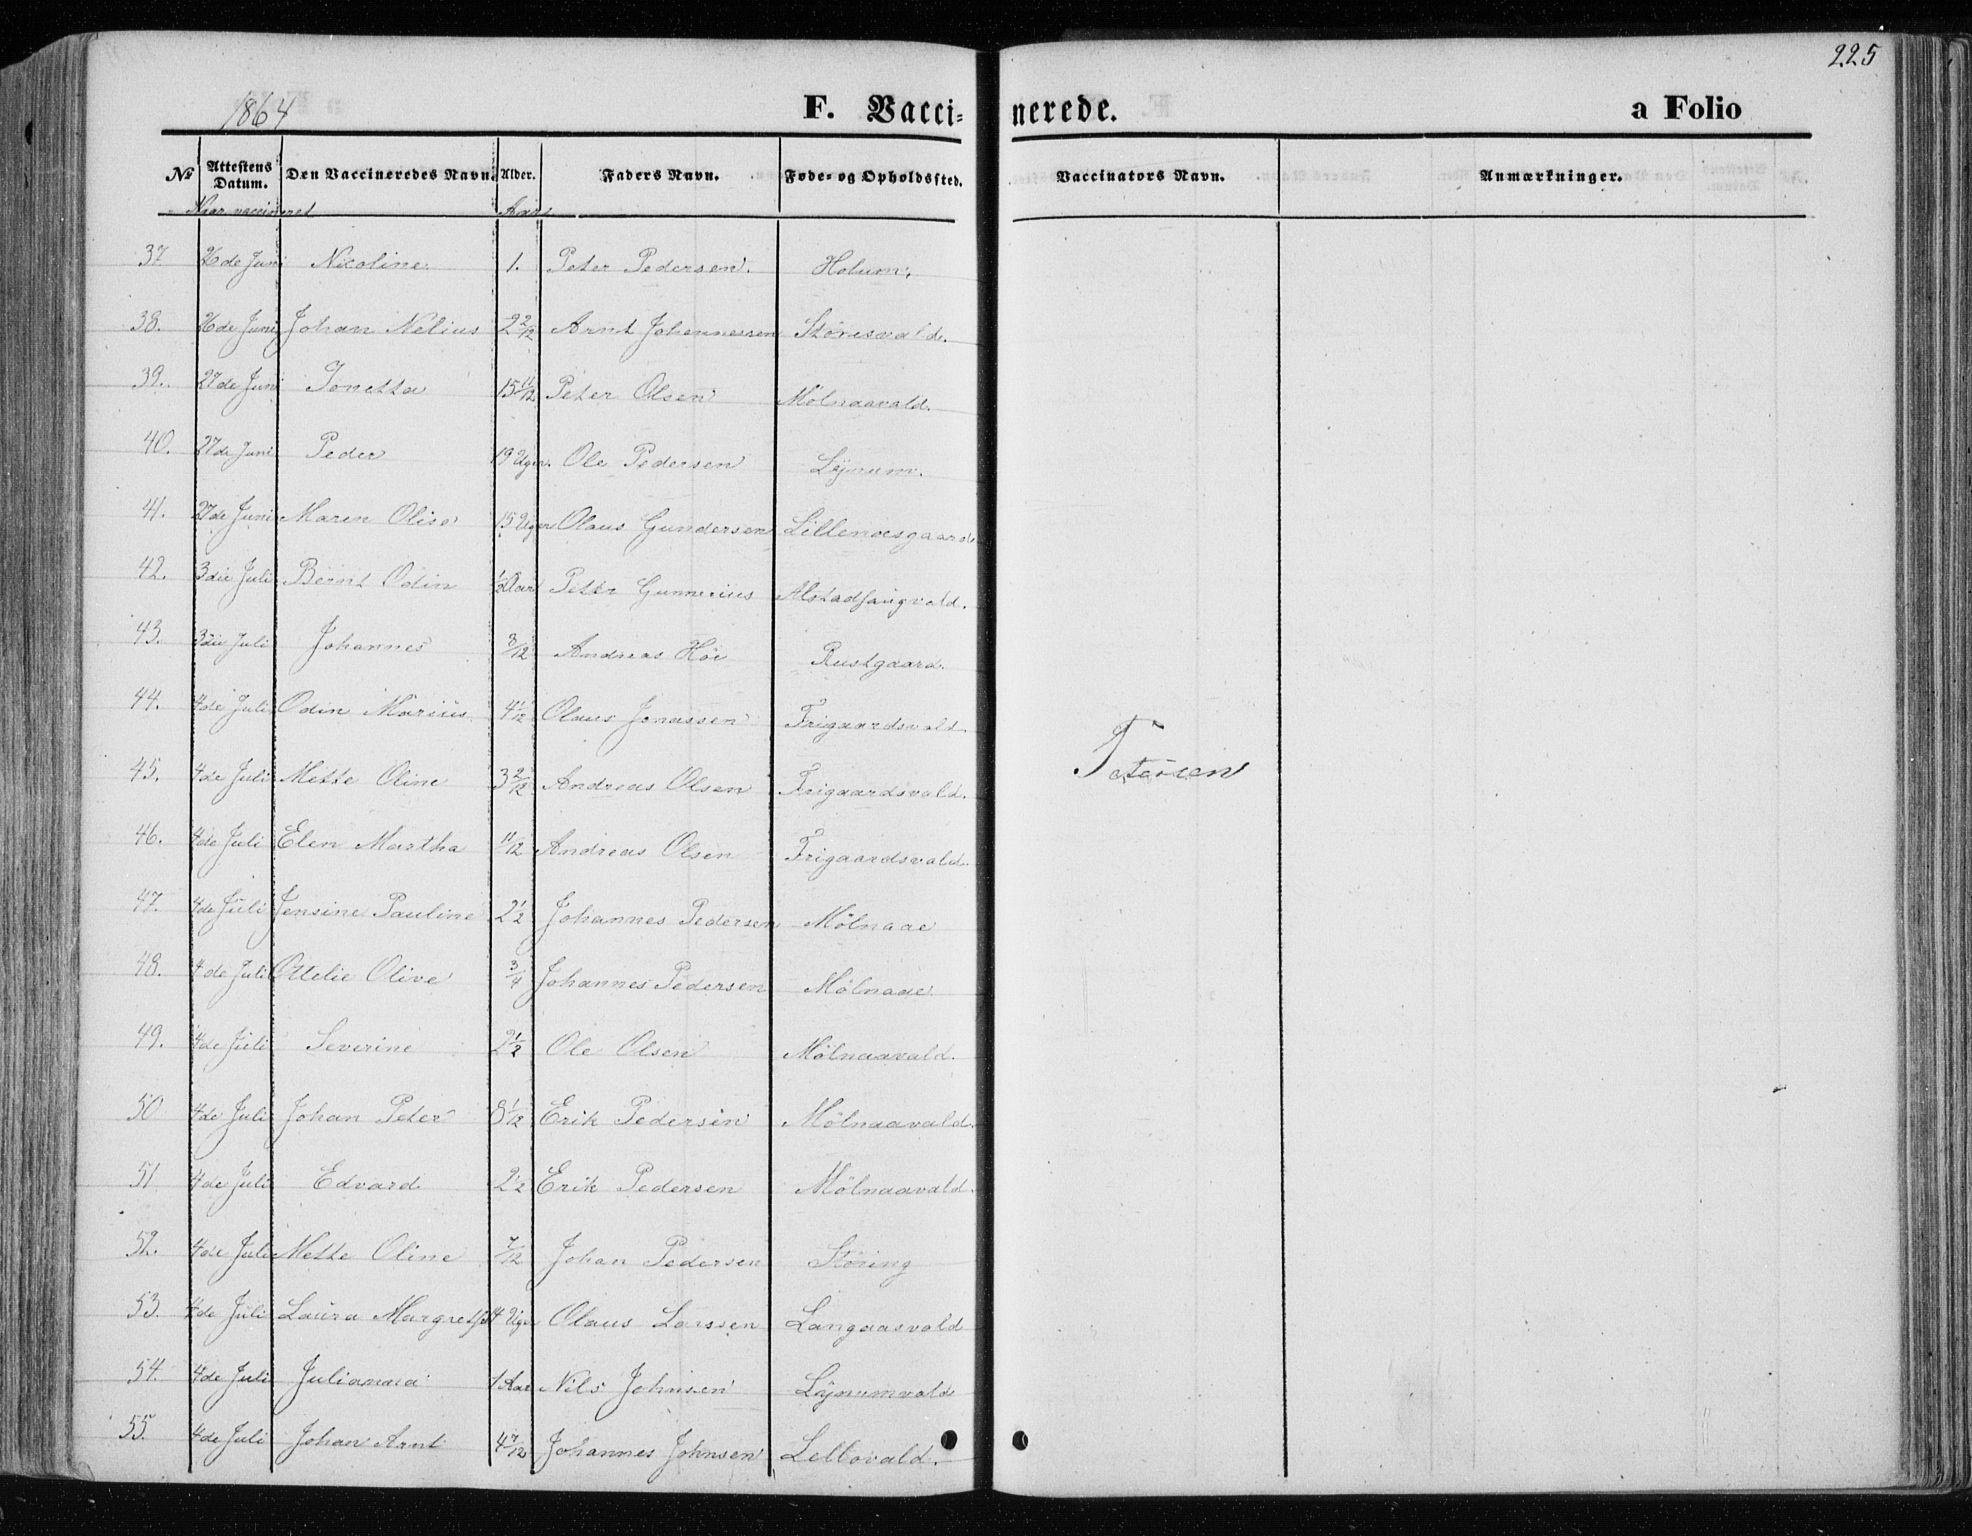 225
1864 F. Vaccinerede. a Folio
No Attestens Datum. Den Vaccineredes Navn. Alder. Faders Navn. Føde- og Opholdssted. Vaccinators Navn. Anmærkninger.
Naar vaccineret Aar
37 26de Juni Nicoline 1. Peter Pedersen. Holum.
38. 26de Juni Johan Nelius 2 2/12 Arnt Johannessen Störesvald.
39. 27de Juni Jonetta 15 11/12 Peter Olsen Mölnaavald.
40. 27de Juni Peder 19 Uger. Ole Pedersen Lÿnum.
41. 27de Juni Maren Olise 15 Uger Olaus Gundersen Lillemoesgaard
42. 3die Juli Bernt Odin 1/2 Aar Peter Gunnerius Alstadhaugvald.
43. 3die Juli Johannes 8/12 Andreas Höe Rustgaard.
44. 4de Juli Odin Marius 4 1/12 Olaus Jonassen Frigaardsvald
45. 4de Juli Mette Oline 3 2/12 Andreas Olsen Frigaardsvald.
46. 4de Juli Elen Martha 11/12 Andreas Olsen Frigaardsvald.
47. 4de Juli Jensine Pauline 2 1/2 Johannes Pedersen Mölnaae
48. 4de Juli Ottelie Olive 3/4 Johannes Pedersen Mölnaae
49. 4de Juli Severine 2 1/2 Ole Olsen Mölnaavald.
50 4de Juli Johan Peter 8 1/12 Erik Pedersen Mölnaavald.
51 4de Juli Edvard 2 1/2 Erik Pedersen Mölnaavald.
52. 4de Juli Mette Oline 7/12 Johan Pedersen Störing
53. 4de Juli Laura Margrethe 14 Uger Olaus Larssen Langaasvald
54. 4de Juli Julianna 1 Aar Nils Johnsen Lynumvald
55. 4de Juli Johan Arnt 4 7/12 Johannes Johnsen